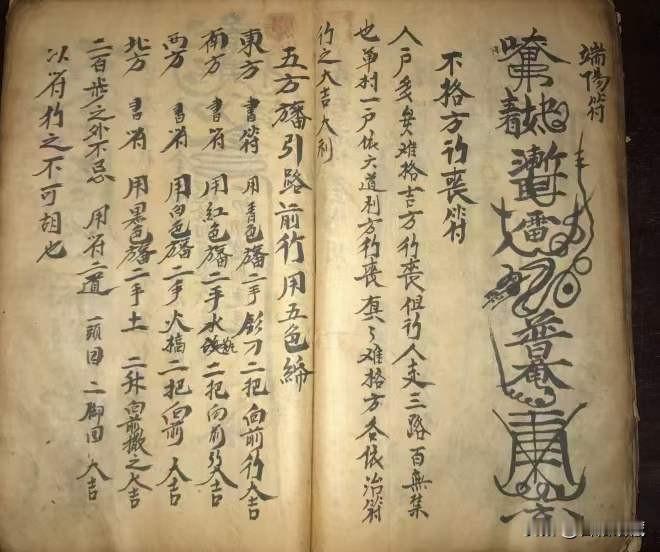 端陽符
普庵
不格方行喪符
人户多矣难格吉方行喪但行人走三路百無禁
也單村一户依大道利方行喪真々难格方各依治符
行之大吉大利
五方旛引路前行用五色綿
東方 書符 用青色旛二手 刀二把向前行大吉
南方 書符 用红色旛二手 水 二把向前行大吉
西方 書符 用白色旛二手 火搞 二把向前 大吉
北方 書符 用黑色旛二手 土 二升向前撒之大吉
二百步之外不忌 用符二道 一頭回 二脚回 大吉
以符行之不可胡也